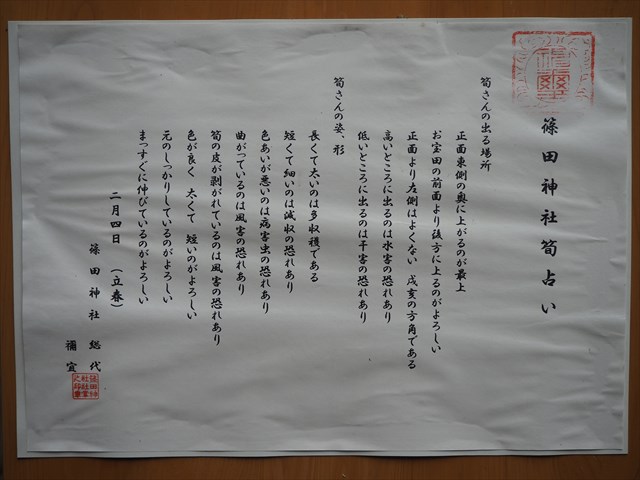 篠田神社筍占い
筍さんの出る場所
正面東側の奥に上がるのが最上
お宝田の前面より後方に上るのがよろしい
正面より左側はよくない 戌亥の方角である
高いところに出るのは水害の恐れあり
低いところに出るのは干害の恐れあり
筍さんの姿、形
長くて太いのは多収穫である
短くて細いのは減収の恐れあり
色あいが悪いのは病害虫の恐れあり
曲がっているのは風害の恐れあり
筍の皮が剥がれているのは風害の恐れあり
色が良く 太くて 短いのがよろしい
元のしっかりしているのがよろしい
まっすぐに伸びているのがよろしい
二月四日 (立春)
篠田神社 総代
禰宜